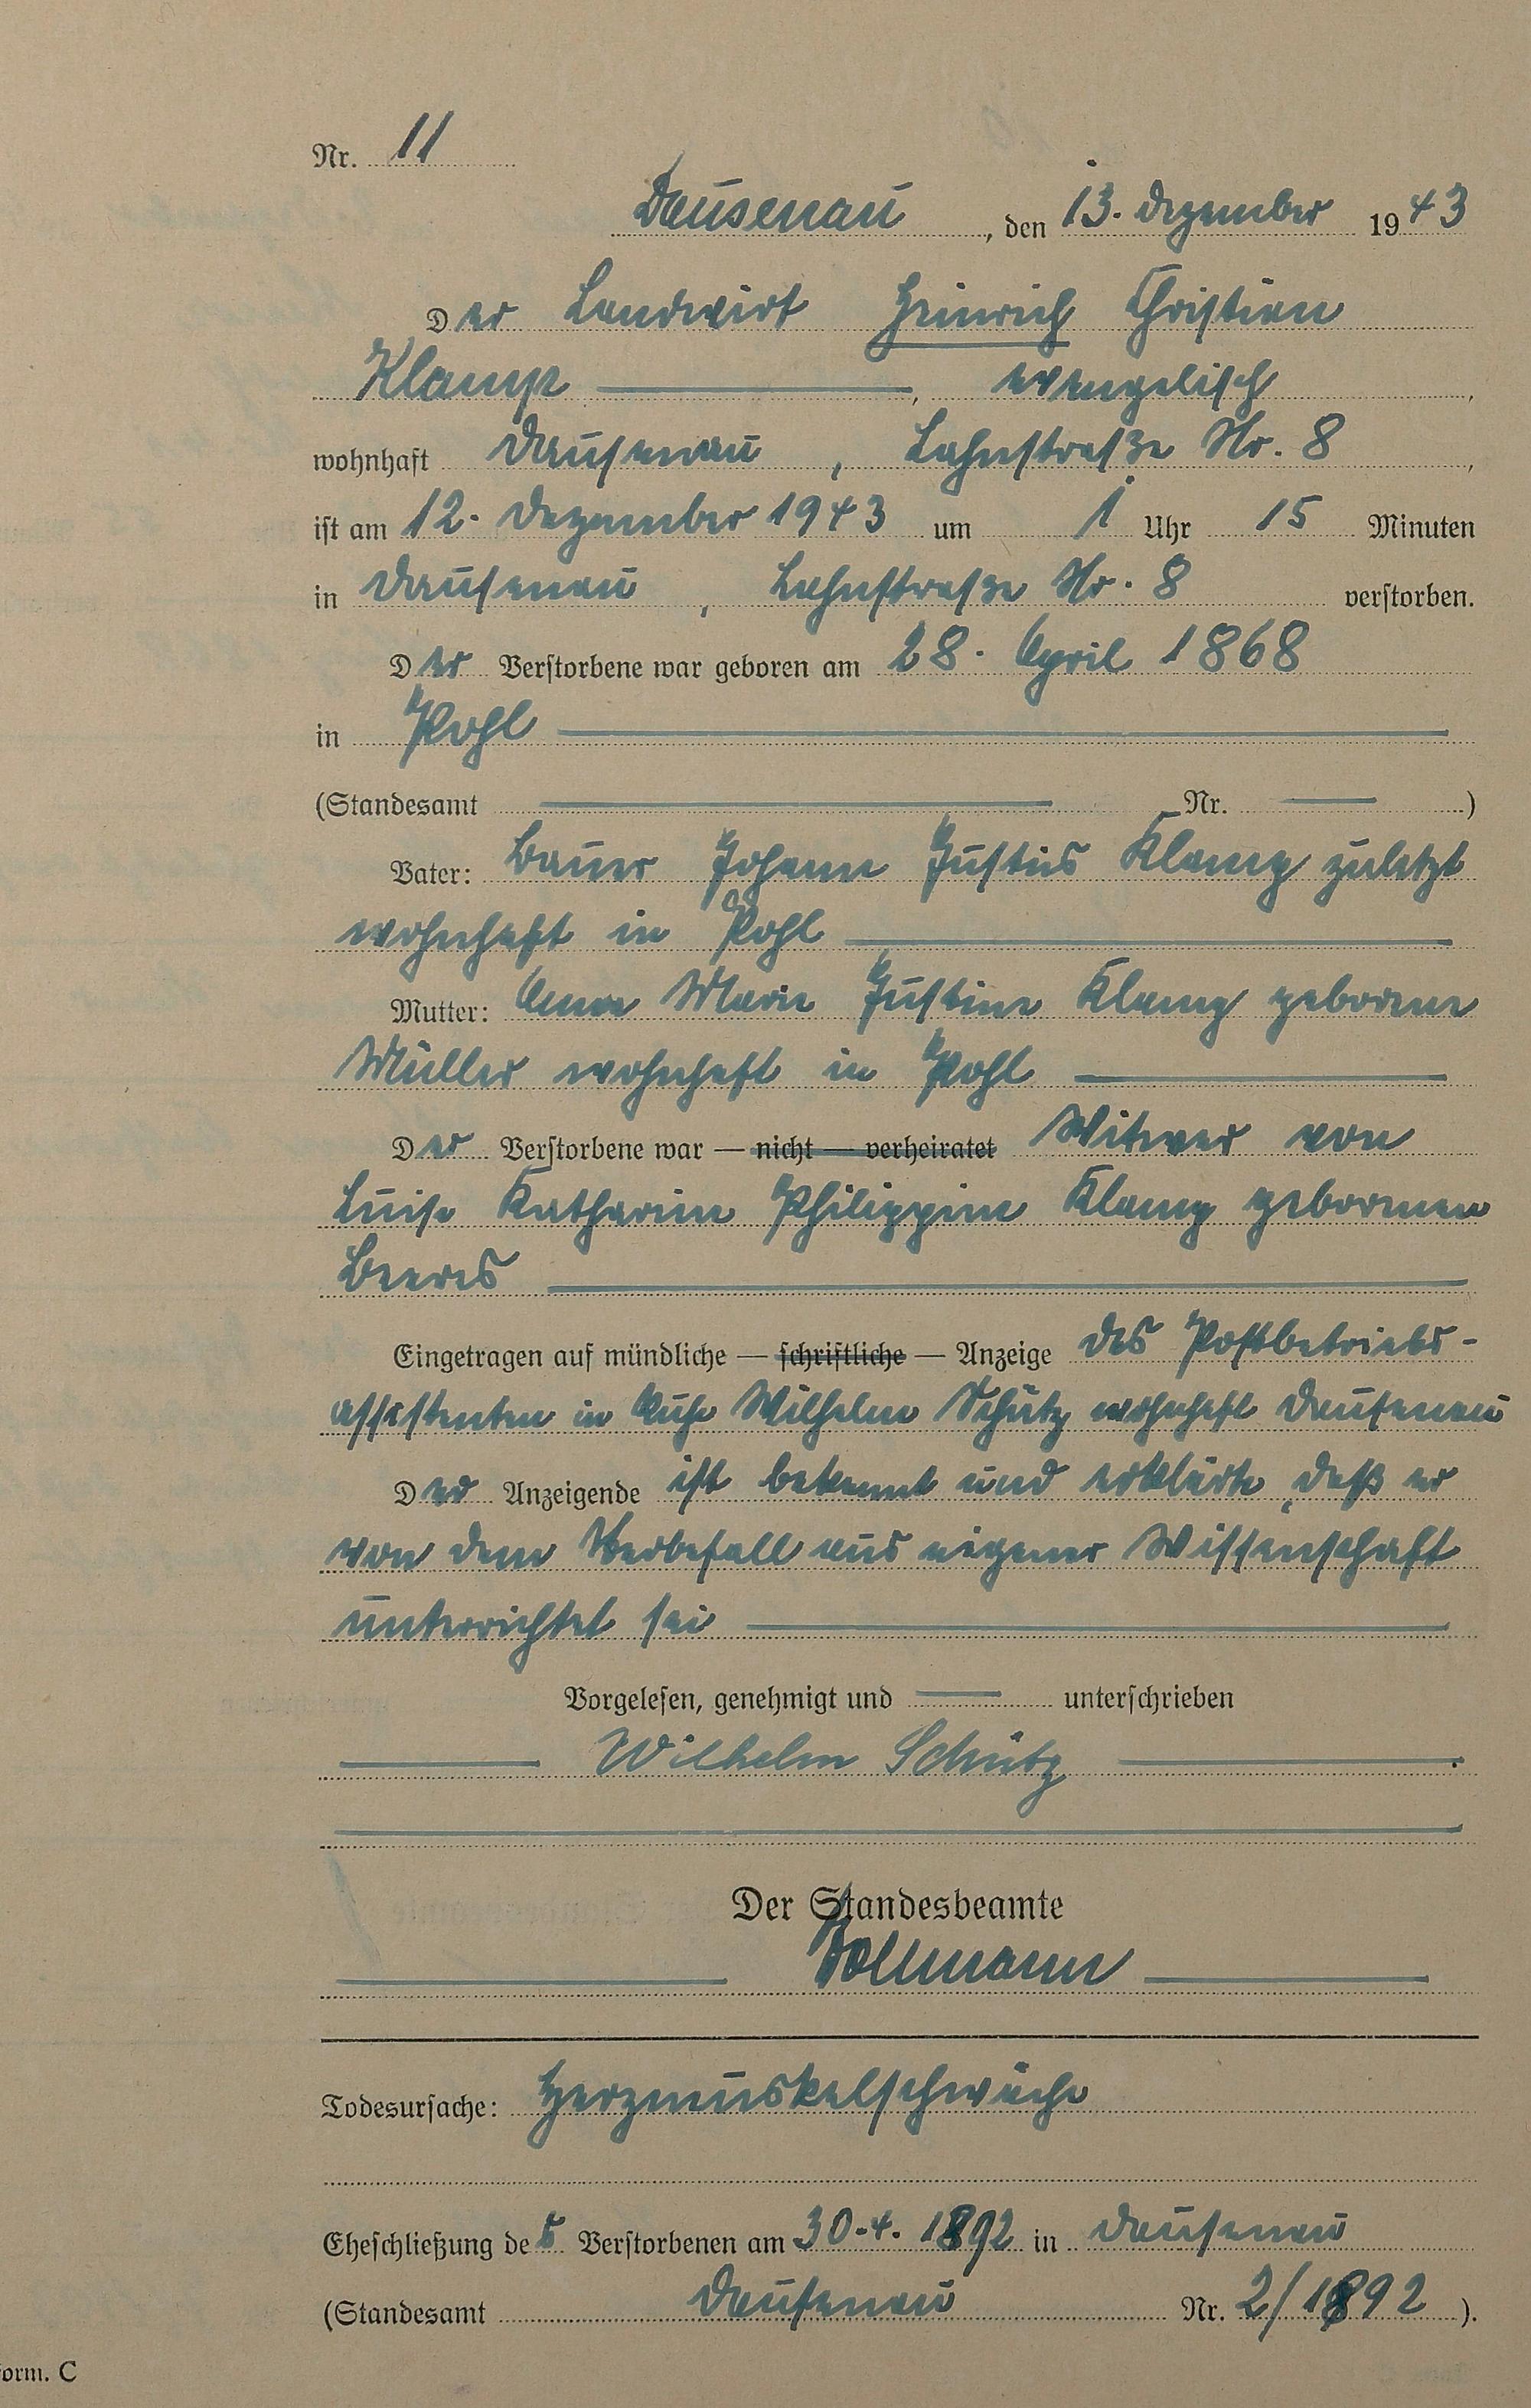 Nr. 11
Dausenau, den 13. Dezember 1943
Der Landwirt Heinrich Christian
Klamp, evangelisch,
wohnhaft Dausenau, Lahnstraße Nr. 8,
ist am 12. Dezember 1943 um 1 Uhr 15 Minuten
in Dausenau, Lahnstraße Nr. 8 verstorben.
Der Verstorbene war geboren am 28. April 1868
in Pohl
(Standesamt Nr. )
Vater: Bauer Johann Justus Klamp zuletzt
wohnhaft in Pohl
Mutter: Anna Marie Justine Klamp geborene
Müller wohnhaft in Pohl
Der Verstorbene war — nicht — verheiratet Witwer von
Luise Katharine Philippine Klamp geborenen
Beeres
Eingetragen auf mündliche — schriftliche — Anzeige des Postbetriebs-
assistenten in Ruhe Wilhelm Schütz wohnhaft Dausenau
Der Anzeigende ist bekannt und erklärte, daß er
von dem Sterbefall aus eigener Wissenschaft
unterrichtet sei
Vorgelesen, genehmigt und unterschrieben
Wilhelm Schütz
Der Standesbeamte
Todesursache: Herzmuskelschwäche
Eheschließung des Verstorbenen am 30.4.1892 in Dausenau
(Standesamt Dausenau Nr. 2/1892).
form. C